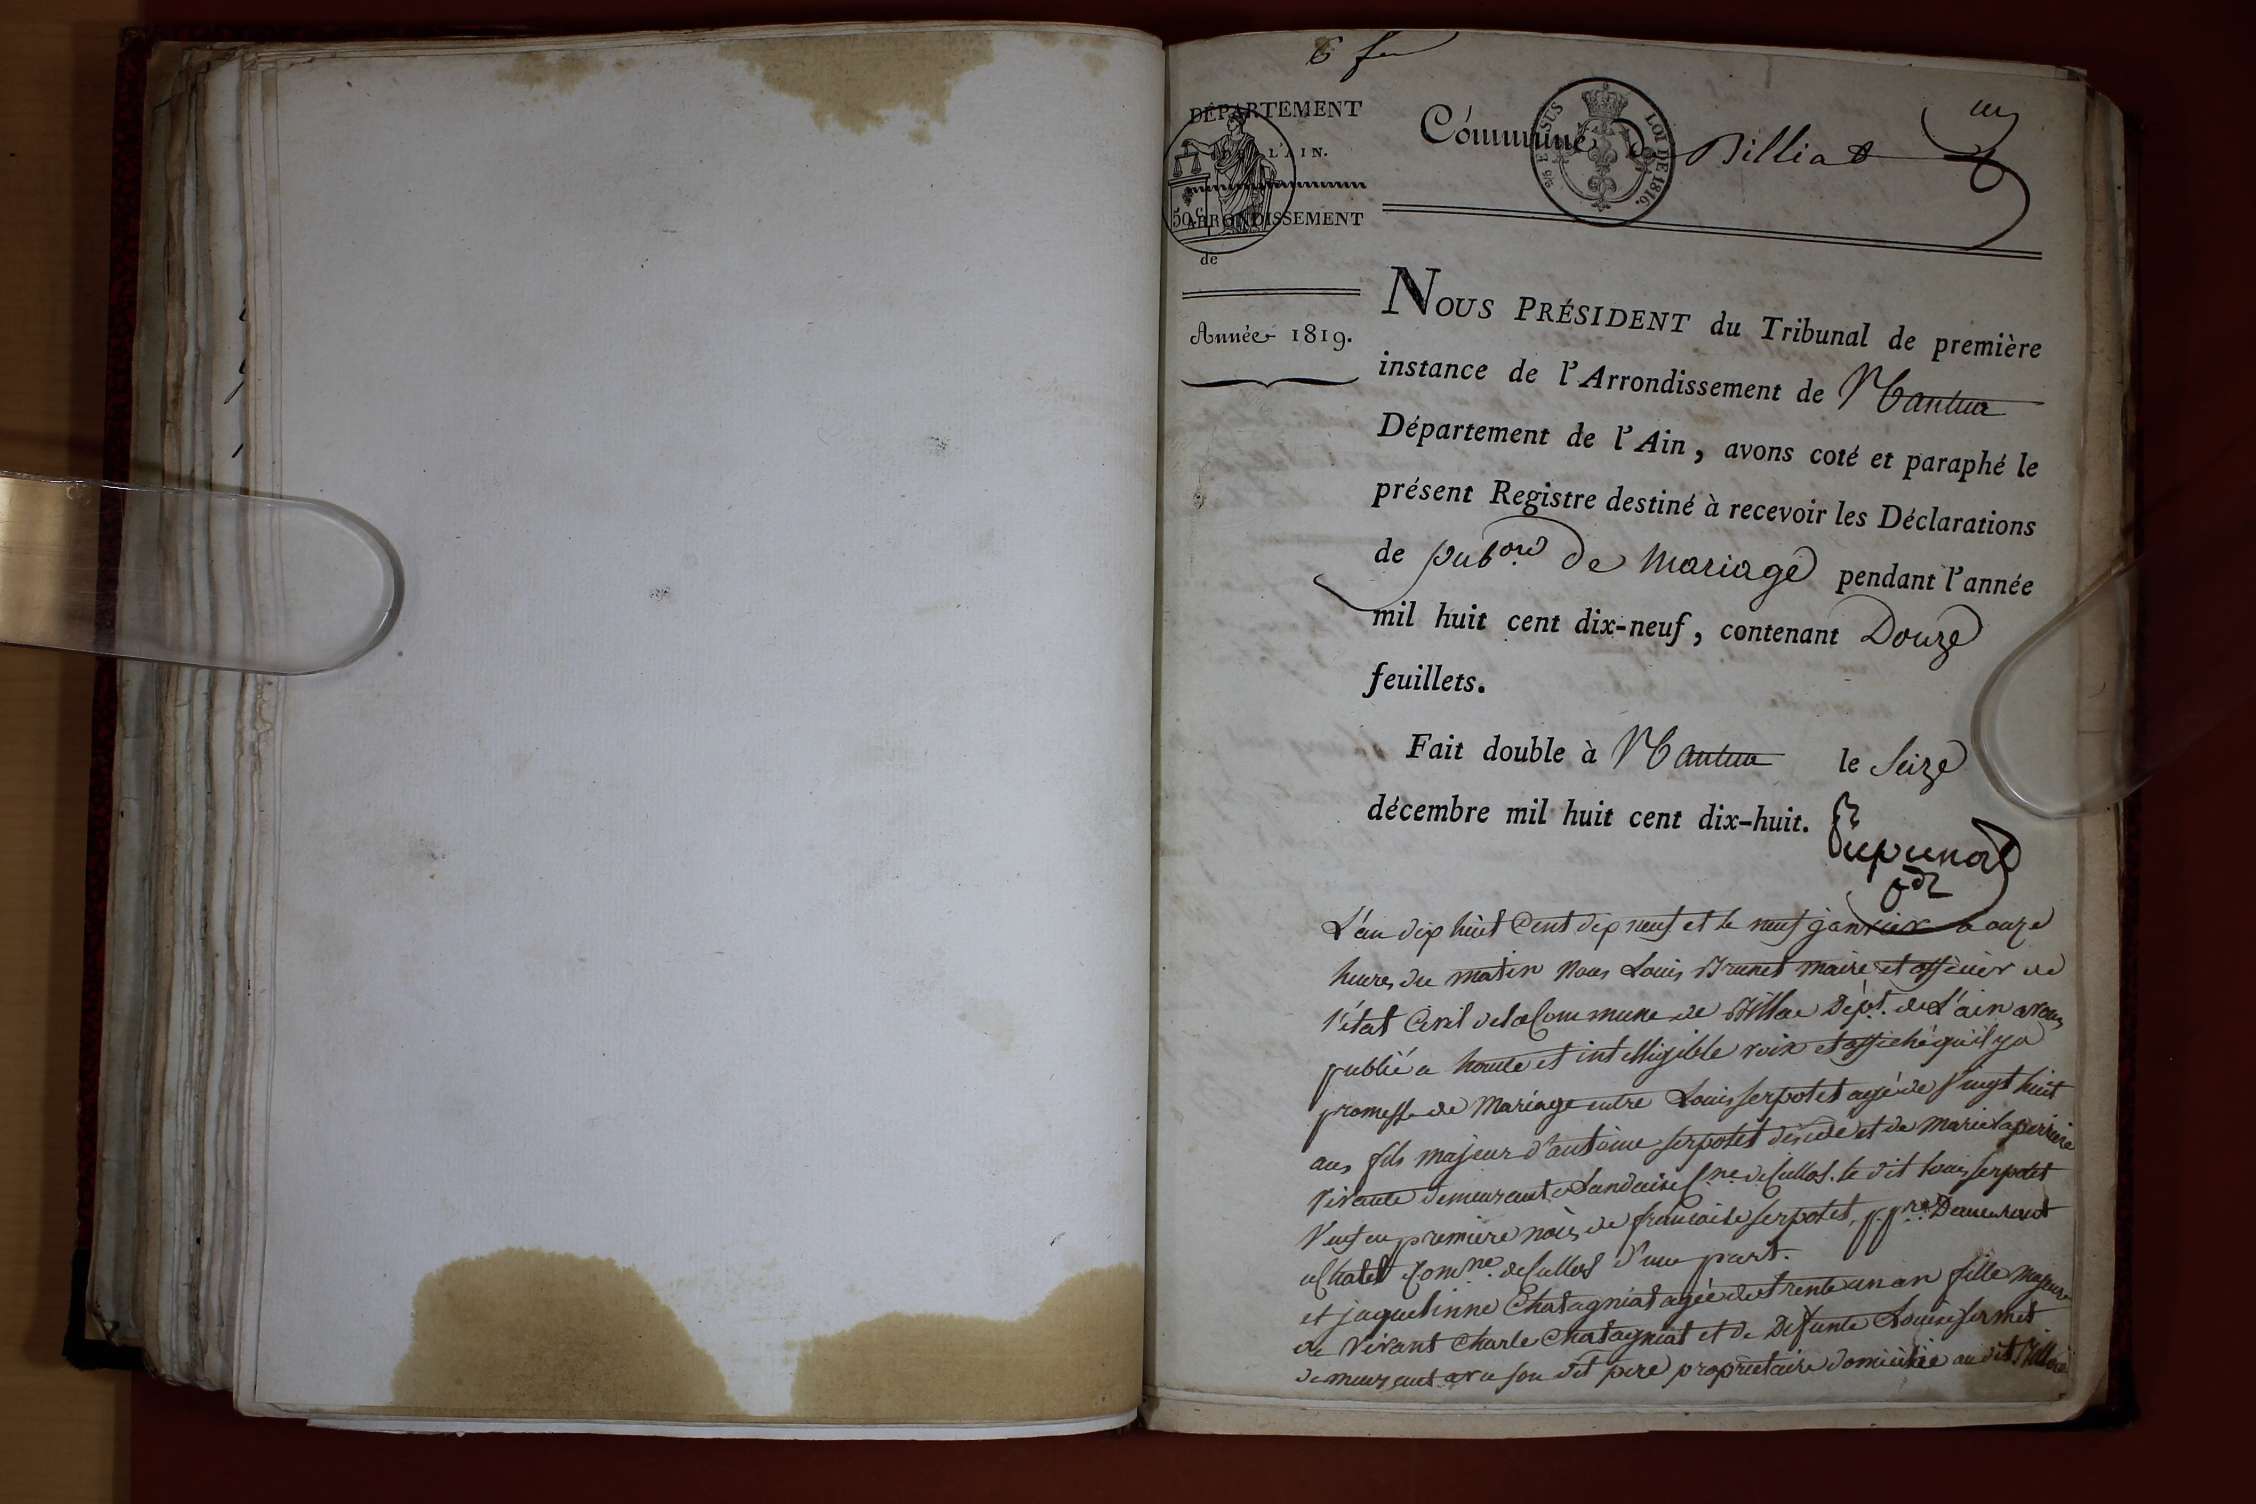 6 f
DÉPARTEMENT
L'AIN.
50 c
ARRONDISSEMENT
de
Année 1819.
Commune de Billiat
5/5 EN SUS LOI DE 1816.
NOUS PRÉSIDENT du Tribunal de première
instance de l'Arrondissement de Nantua
Département de l'Ain, avons coté et paraphé le
présent Registre destiné à recevoir les Déclarations
de pubons de Mariage pendant l'année
mil huit cent dix-neuf, contenant Douze
feuillets.
Fait double à Nantua le Seize
décembre mil huit cent dix-huit.
L'an dix huit Cent dix neuf et le neuf janvier a onze
heures du matin Nous Louis Brunet maire et officier de
l'état Civil de la Commune de Billiae Dépt. de L'ain avons
publié a haute et intelligible voix et affiché qu'il y a
promesse de Mariage entre Louis Serpotet agé de Vingt huit
ans fils majeur d'antoine Serpotet décédé et de marie laperrire
Vivante demeurant a Landaise Cne de Cullos. le dit Louis Serpotet
Veuf en premiere nôce de francoise Serpotet, ppre Demeurant
a Chatel Comne. de Cullos d'une part.
et jaquelinne Chatagniat agée de trente un an fille majeure
de Vivant Charle Chatagniat et de Defunte Louise Sermet
demeurant avec son dit pere proprietaire domicilié au dit Billiae